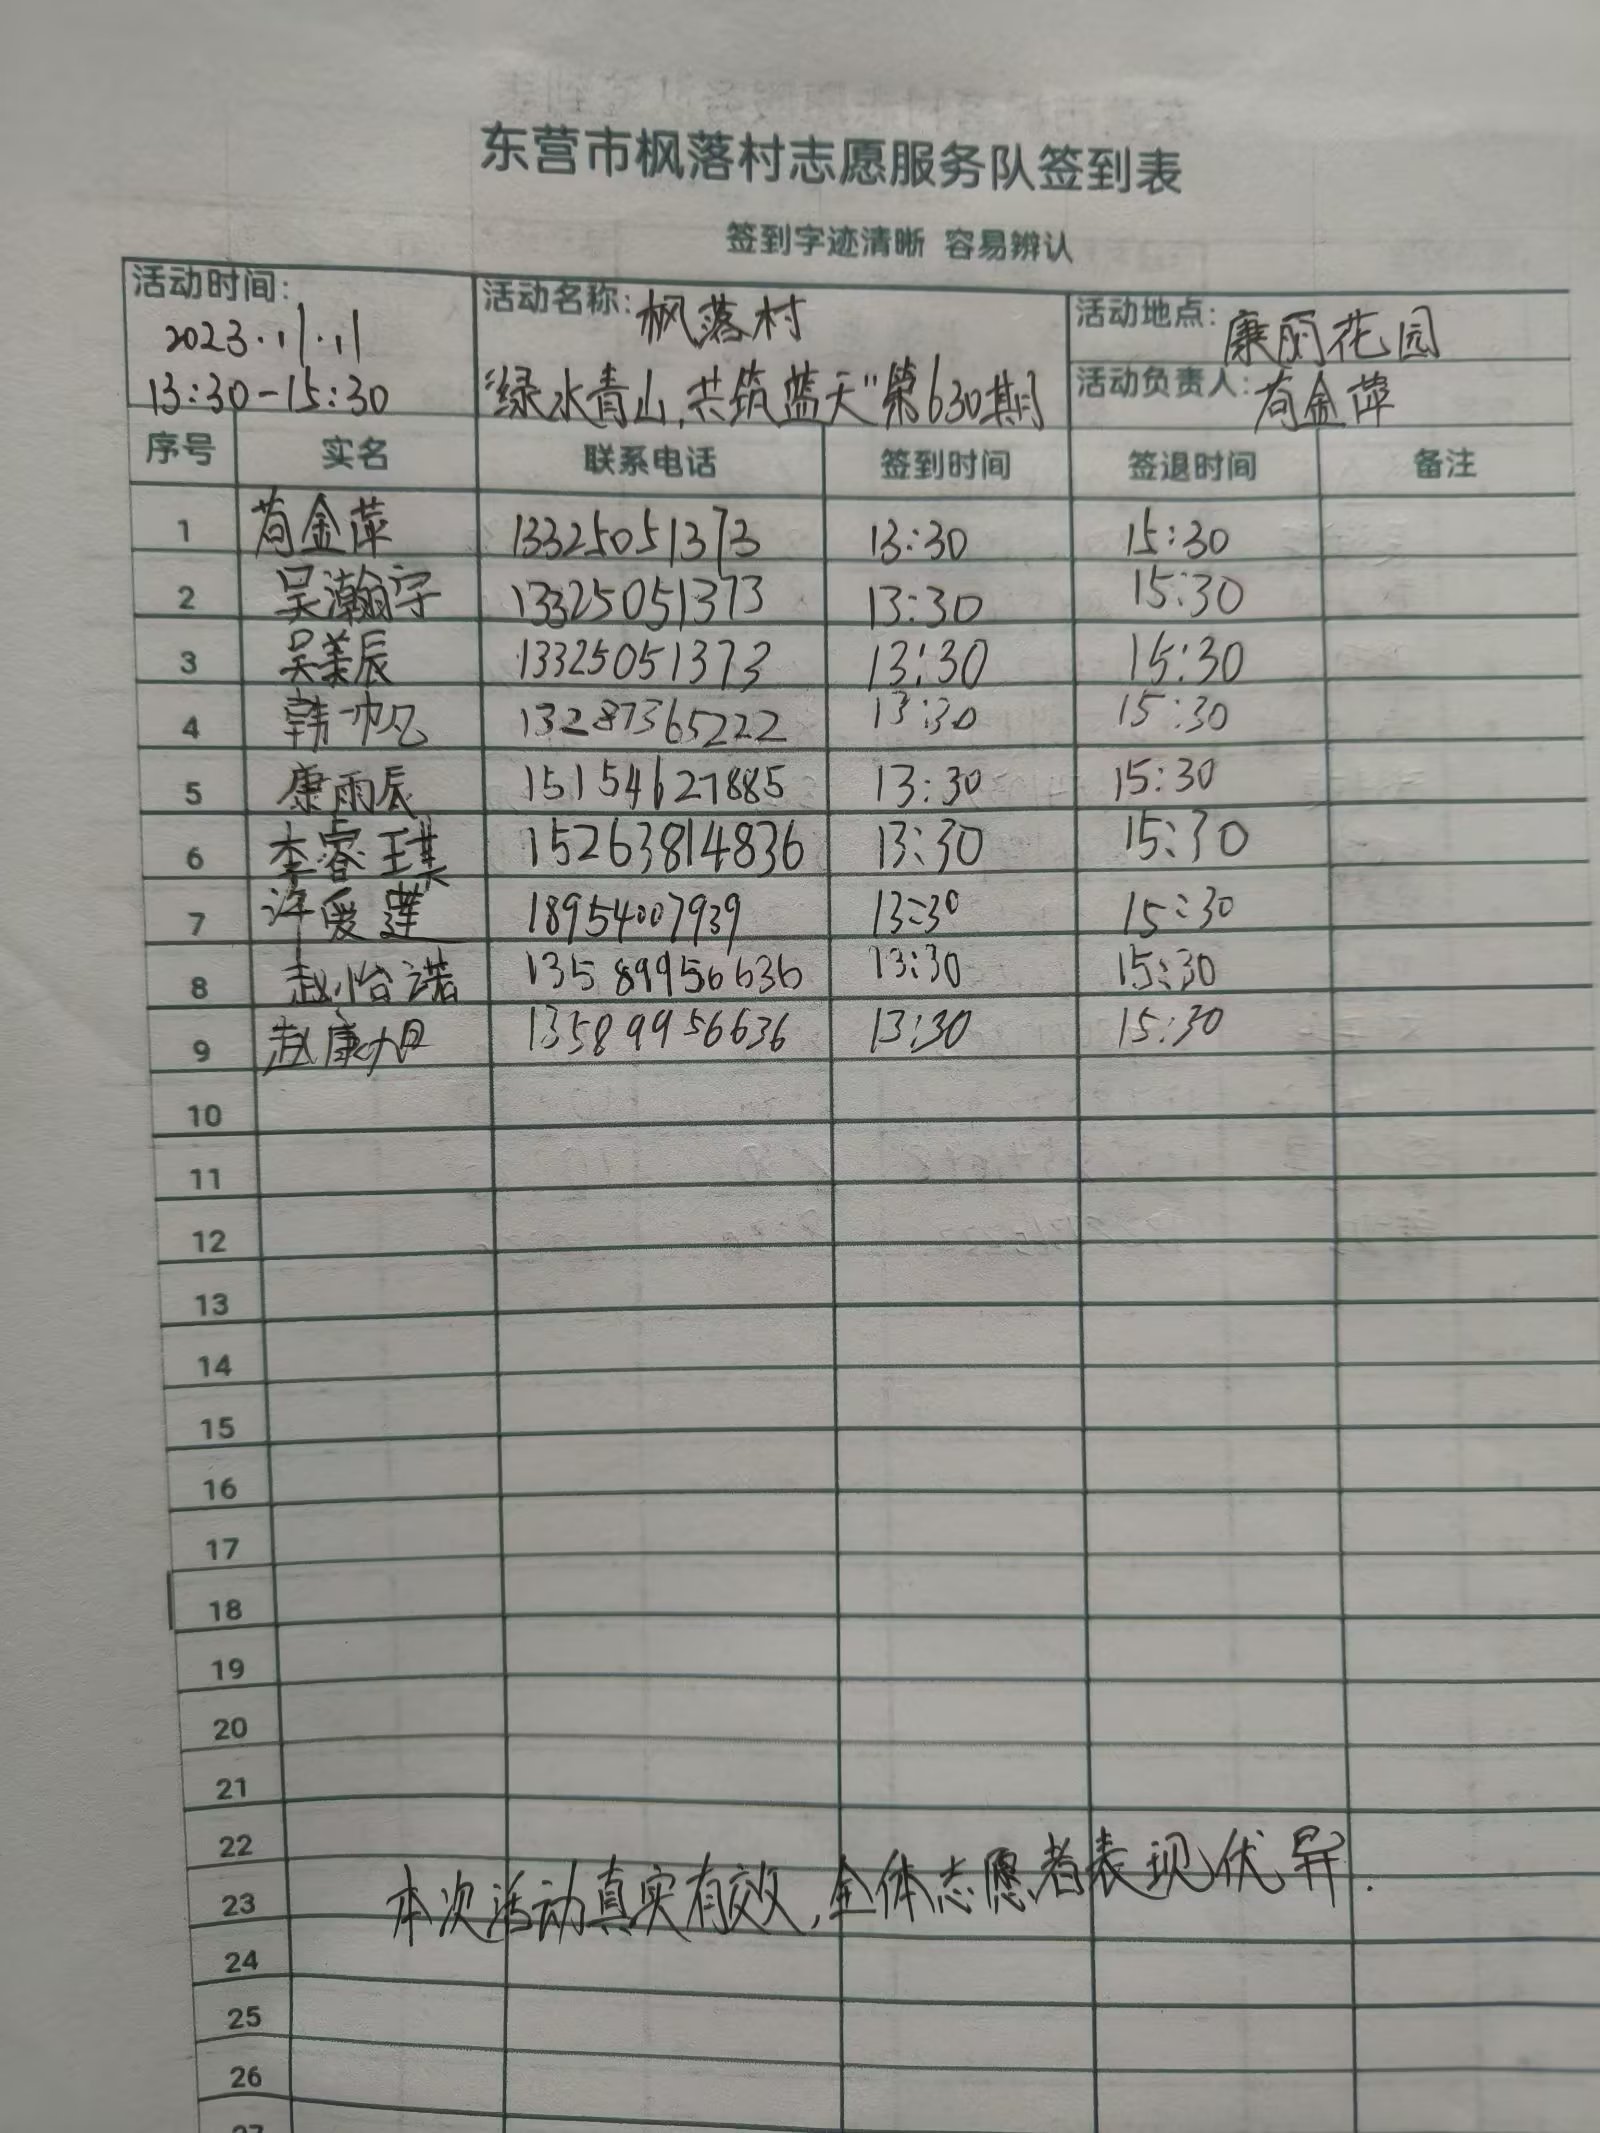 东营市枫落村志愿服务队签到表
签到字迹清晰 容易辨认
活动时间: 2023.11.11 13:30-15:30
活动名称: 枫落村 "绿水青山,共筑蓝天"第630期
活动地点: 康丽花园
活动负责人: 苟金萍
序号 实名 联系电话 签到时间 签退时间 备注
1 苟金萍 13325051373 13:30 15:30
2 吴瀚宇 13325051373 13:30 15:30
3 吴美辰 13325051373 13:30 15:30
4 韩一帆 13287365222 13:30 15:30
5 康雨辰 15154627885 13:30 15:30
6 李睿琪 15263814836 13:30 15:30
7 许爱莲 18954007939 13:30 15:30
8 赵怡诺 13589956636 13:30 15:30
9 赵康旭 13589956636 13:30 15:30
10
11
12
13
14
15
16
17
18
19
20
21
22
23
本次活动真实有效,全体志愿者表现优异.
24
25
26
27